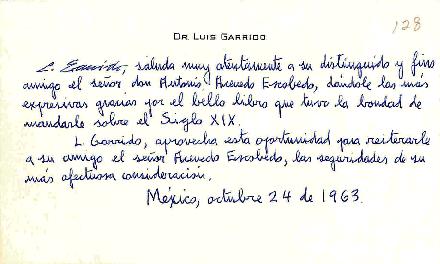 128
DR. LUIS GARRIDO
L. Garrido, saluda muy atentamente a su distinguido y fino
amigo el señor don Antonio Acevedo Escobedo, dándole las más
expresivas gracias por el bello libro que tuvo la bondad de
mandarle sobre el Siglo XIX.
L. Garrido, aprovecha esta oportunidad para reiterarle
a su amigo el señor Acevedo Escobedo, las seguridades de su
más afectuosa consideración.
México, octubre 24 de 1963.